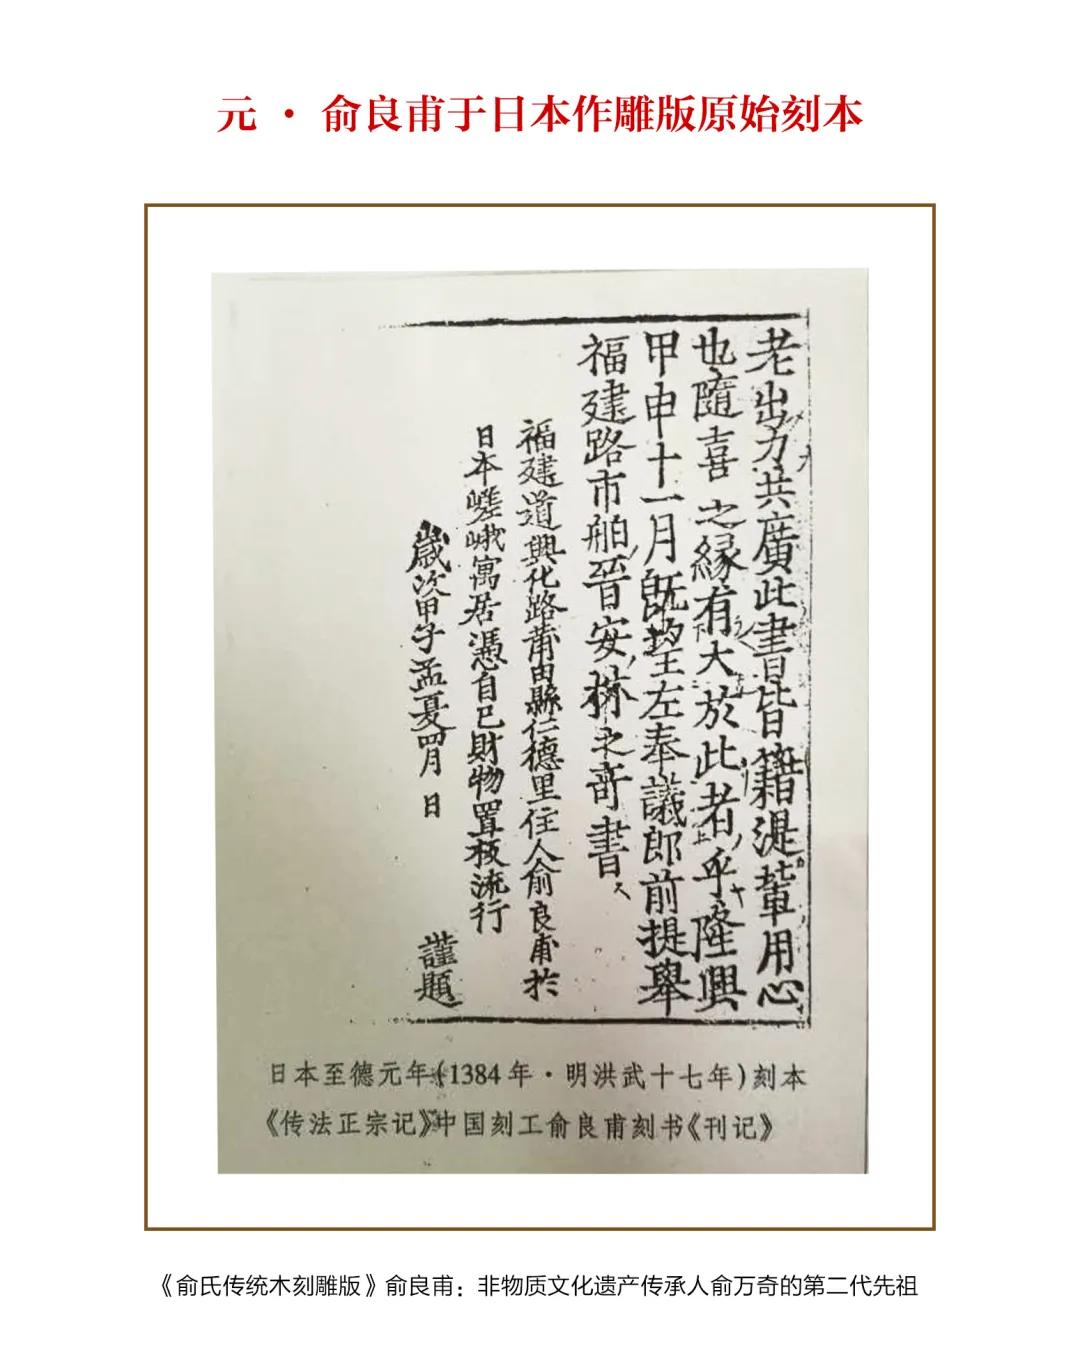 元 · 俞良甫于日本作雕版原始刻本
老出力共廣此書皆籍湜輩用心
也隨喜之緣有大於此者乎隆興
甲申十一月既望左奉議郎前提舉
福建路市舶晉安林之奇書
福建道興化路莆田縣仁德里住人俞良甫於
日本嵯峨寓居憑自己財物置板流行
歲次甲子孟夏四月 日 謹題
日本至德元年(1384年·明洪武十七年)刻本
《传法正宗记》中国刻工俞良甫刻书《刊记》
《俞氏传统木刻雕版》俞良甫：非物质文化遗产传承人俞万奇的第二代先祖